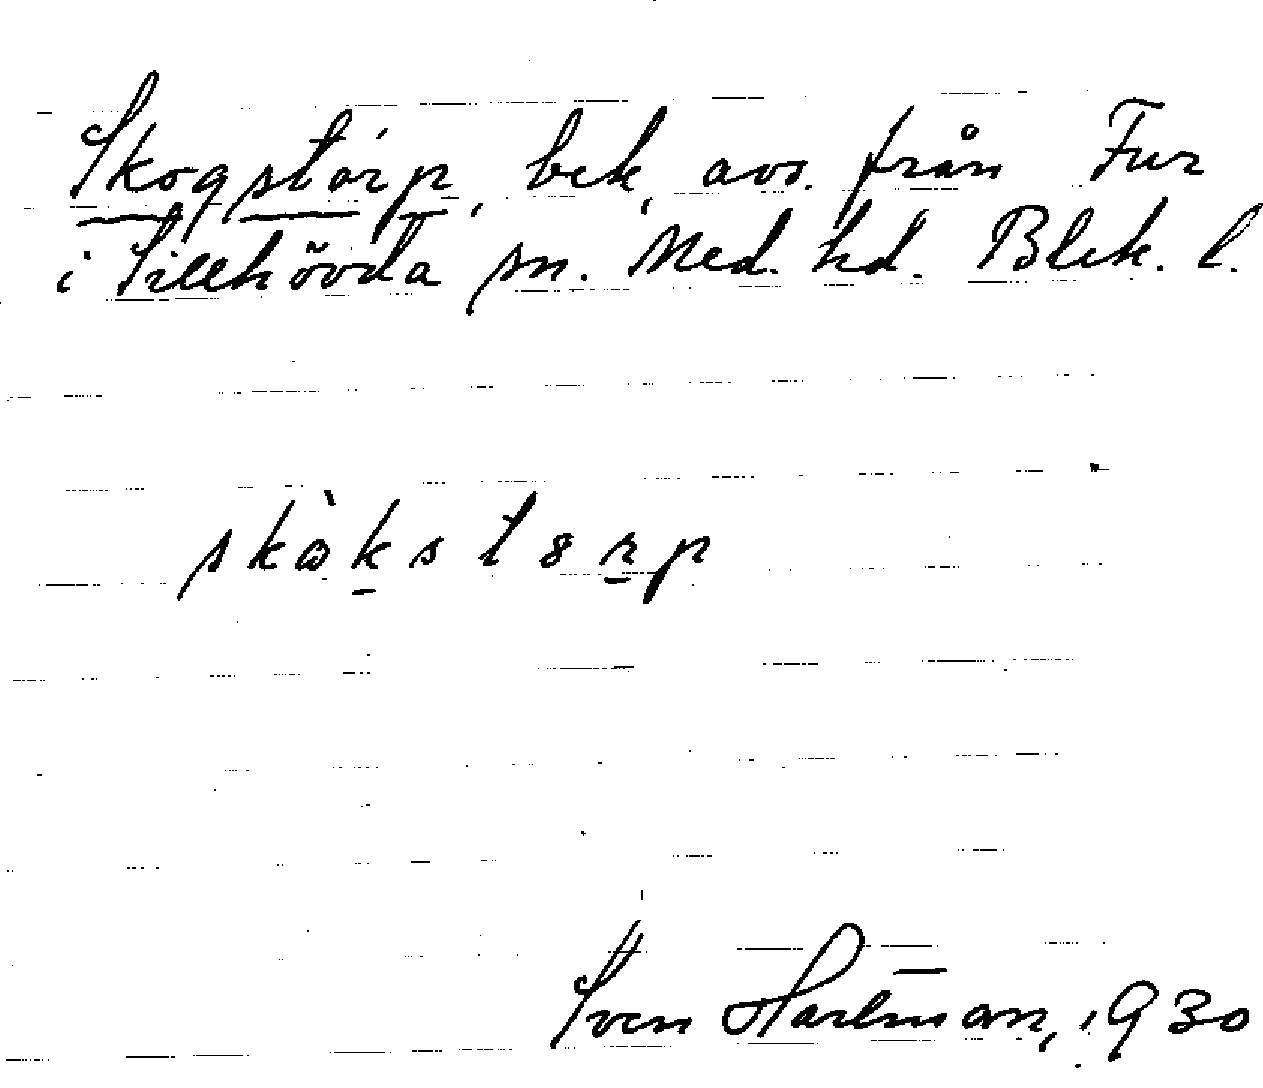 Skogstorp, bek. avs. från Fur
i Sillhövda sn. Med. hd. Blek. l.
skòkstɜrp
Sven Hartman, 1930